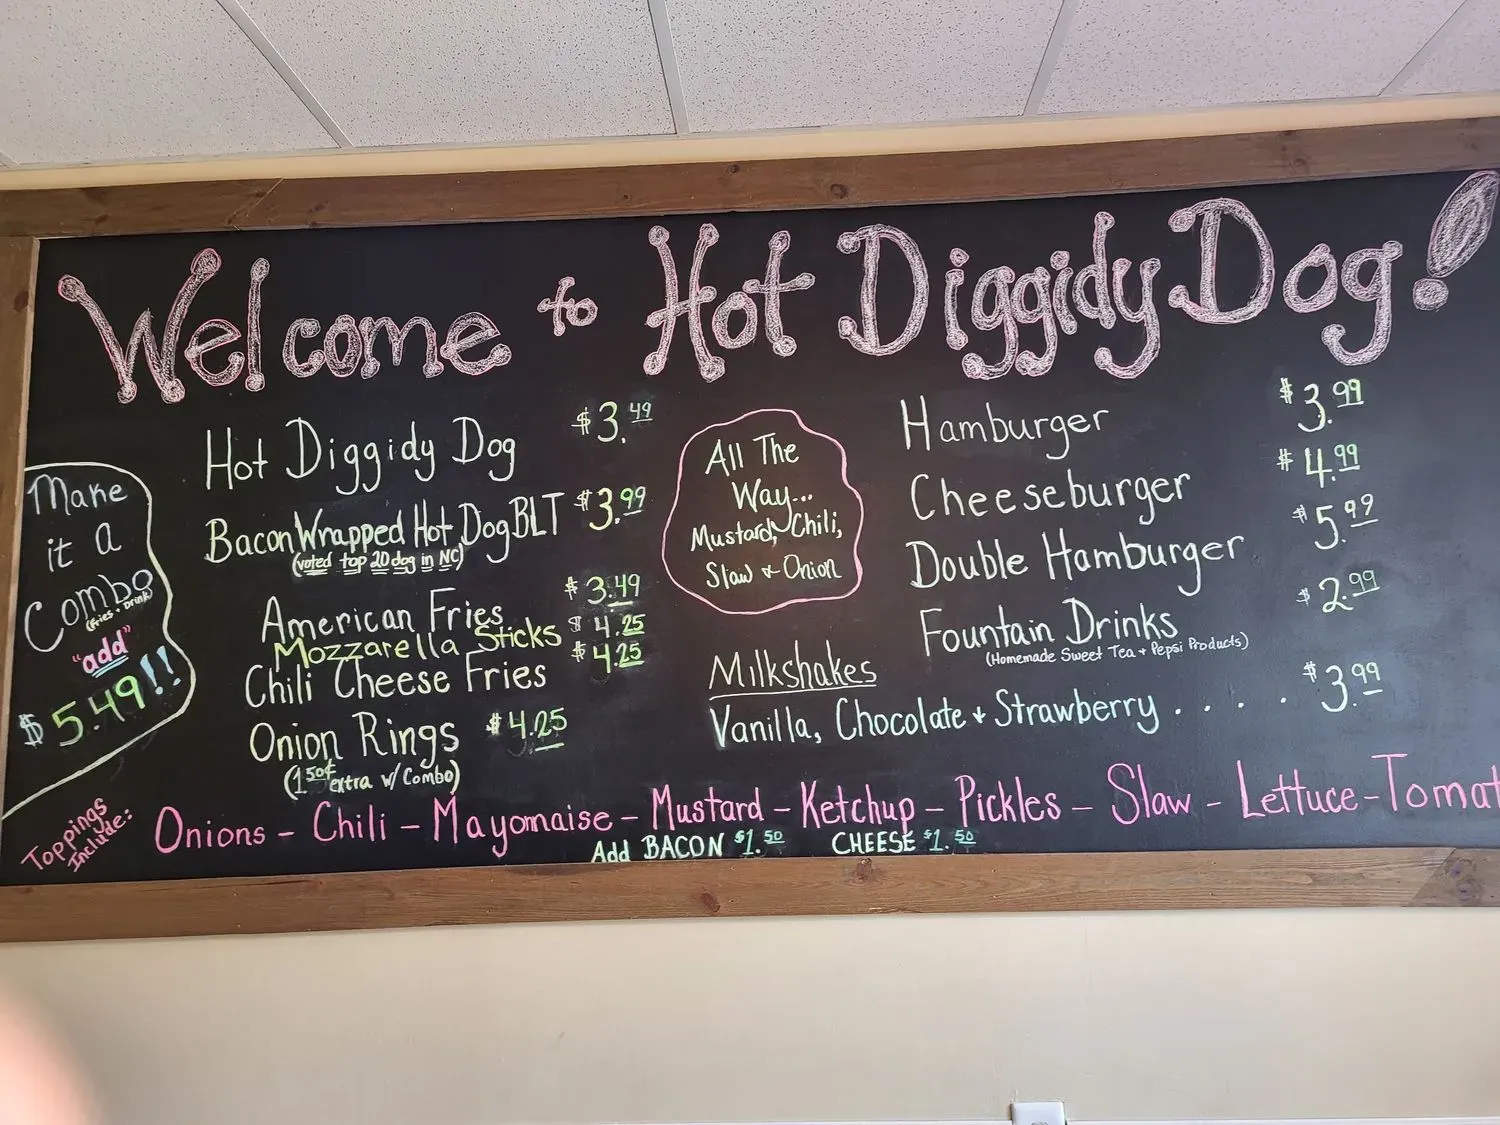 Welcome to Hot Diggidy Dog!
Make
it a
Combo
(Fries + Drink)
"add"
$5.49!!
Hot Diggidy Dog $3.49
Bacon Wrapped Hot Dog BLT $3.99
(voted top 20 dog in NC)
American Fries $3.49
Mozzarella Sticks $4.25
Chili Cheese Fries $4.25
Onion Rings $4.25
(1.50¢ extra w/ Combo)
All The
Way...
Mustard, Chili,
Slaw + Onion
Hamburger $3.99
Cheeseburger $4.99
Double Hamburger $5.99
Fountain Drinks $2.99
(Homemade Sweet Tea + Pepsi Products)
Milkshakes
Vanilla, Chocolate + Strawberry . . . . $3.99
Toppings
Include:
Onions - Chili - Mayomaise - Mustard - Ketchup - Pickles - Slaw - Lettuce - Tomat
Add BACON $1.50 CHEESE $1.50